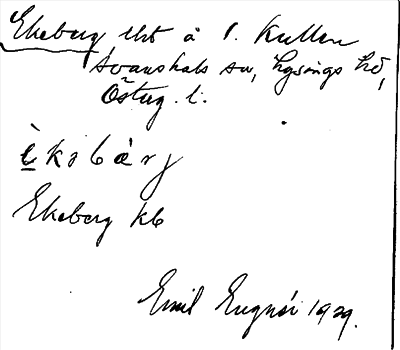 Ekeberg tht å l. Kullen
Svanshals sn, Lysings hd,
Östug. l.
èkəbàrj
Ekeberg kb
Emil Eugnér 1929.